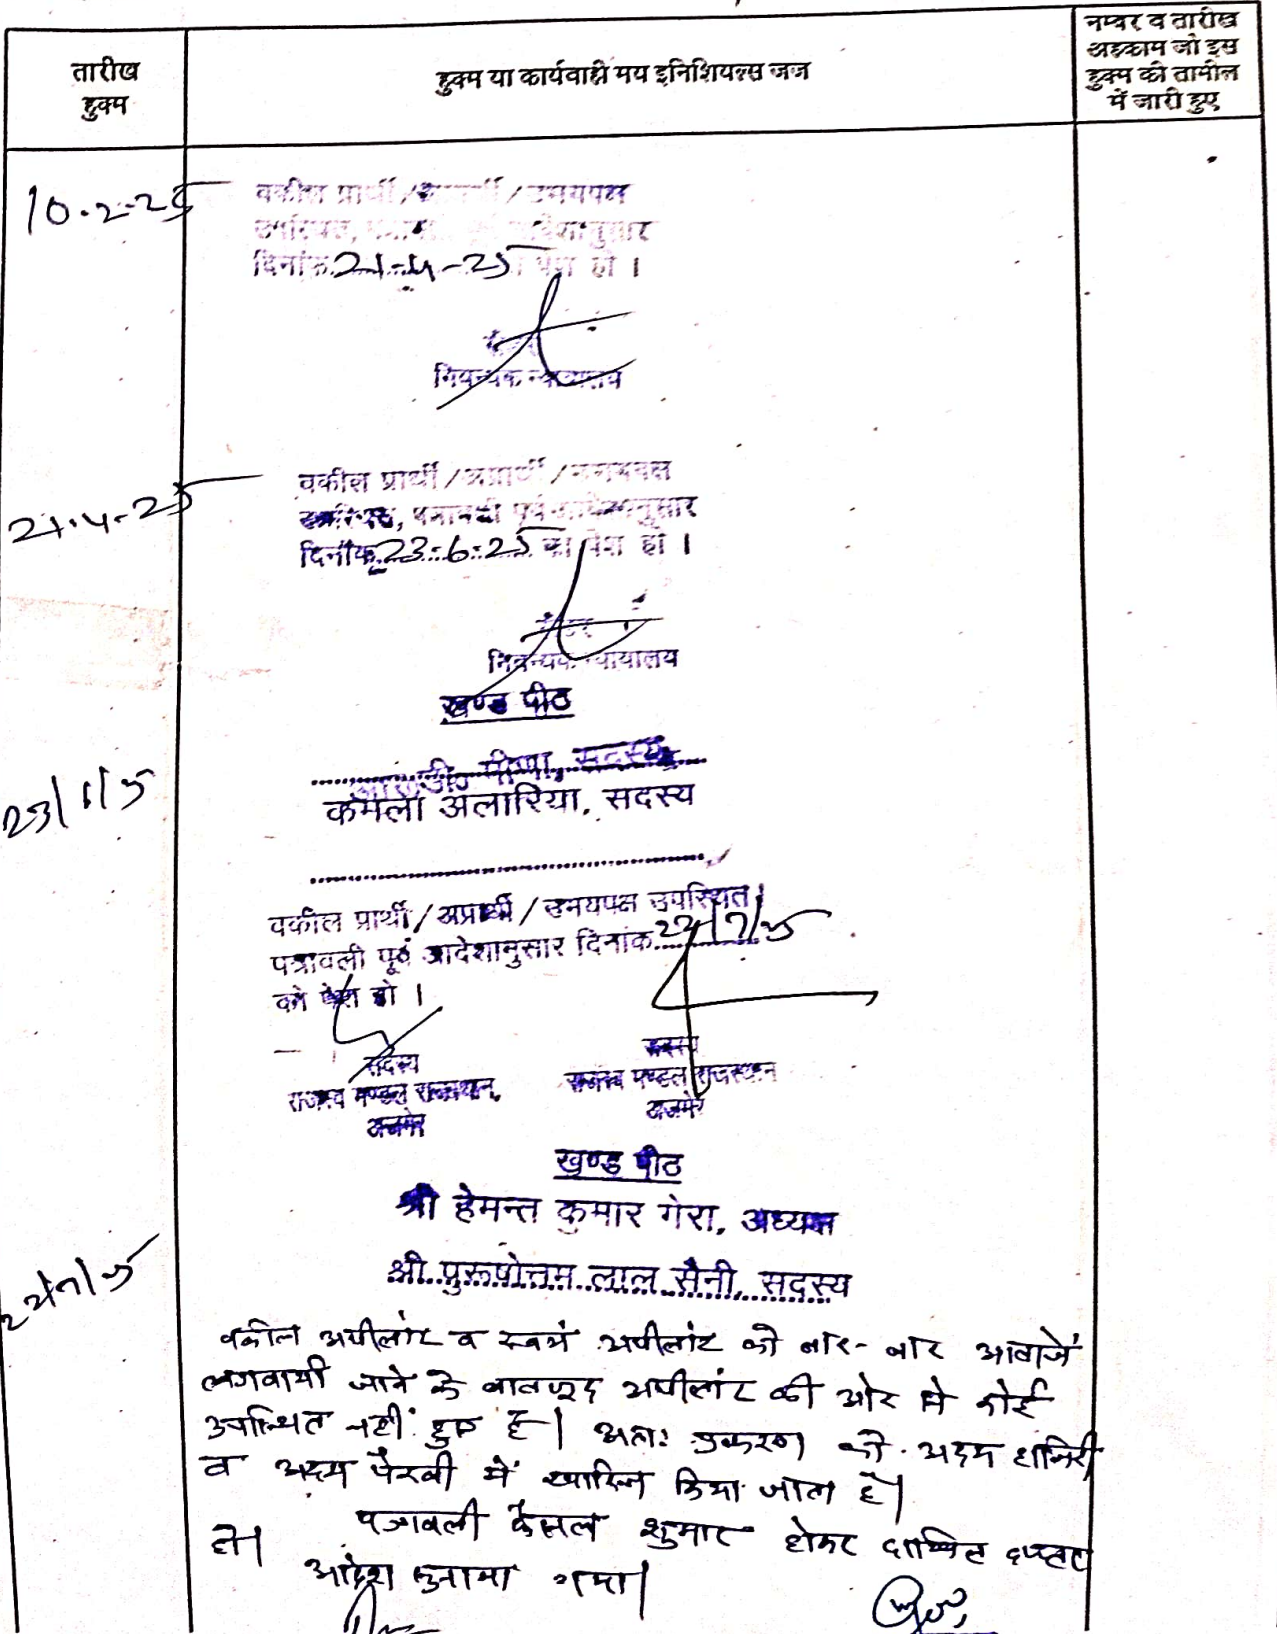 तारीख
हुक्म
हुक्म या कार्यवाही मय इनिशियल्स जज
नम्बर व तारीख
अहकाम जो इस
हुक्म की तामील
में जारी हुए
10.2.25
वकील प्रार्थी / / उभयपक्ष
उपस्थित, आदेशानुसार
दिनांक 21-4-25 पेश हो ।
नियन्धक न्यायालय
21.4.25
वकील प्रार्थी / अप्रार्थी / उभयपक्ष
उपस्थित, पत्रावली पूर्व आदेशानुसार
दिनांक 23.6.25 को पेश हो ।
रीडर
निबन्धक न्यायालय
खण्ड पीठ
मीणा, सदस्य
कमला अलारिया, सदस्य
वकील प्रार्थी / अप्रार्थी / उभयपक्ष उपस्थित।
पत्रावली पूर्व आदेशानुसार दिनांक 22/7/25
को पेश हो ।
सदस्य
राजस्व मण्डल राजस्थान,
अजमेर
सदस्य
राजस्व मण्डल राजस्थान
अजमेर
खण्ड पीठ
श्री हेमन्त कुमार गेरा, अध्यक्ष
22/7/25
श्री पुरूषोत्तम लाल सैनी, सदस्य
वकील अपीलांट व स्वयं अपीलांट को बार-बार आवाजें
लगवायी जाने के बावजूद अपीलांट की ओर से कोई
उपस्थित नहीं हुए है। अतः प्रकरण को अदम हाजिरी
व अदम पैरवी में खारिज किया जाता है।
पत्रावली फैसल शुमार होकर दाखिल दफ्तर
हो।
आदेश सुनाया गया।